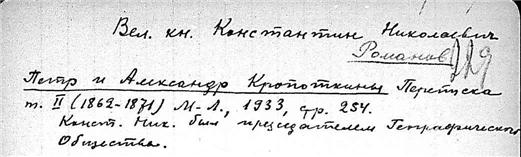 Вел. кн. Константин Николаевич
Романов
Петр и Александр Кропоткины Переписка
т. II (1862-1871) М-Л., 1933, стр. 254.
Конст. Ник. был председателем Географического
Общества.